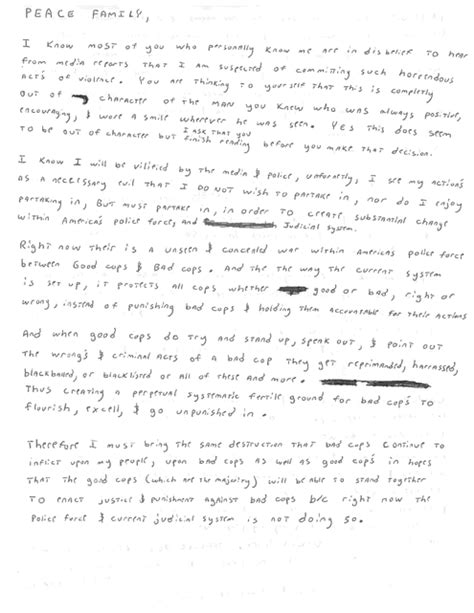 PEACE FAMILY,
I know most of you who personally know me are in disbelief to hear
from media reports that I am suspected of committing such horrendous
acts of violence. You are thinking to yourself that this is completly
out of character of the man you knew who was always positive,
encouraging, & wore a smile wherever he was seen. Yes this does seem
to be out of character but I ask that you finish reading before you make that decision.
I know I will be vilified by the media & police, unfortently, I see my action's
as a necessary evil that I do not wish to partake in, nor do I enjoy
partaking in, but must partake in, in order to create substantial change
within America's police force, and Judicial system.
Right now their is a unseen & concealed war within Americas police force
between Good cops & Bad cops. And the the way the current system
is set up, it protects all cops whether good or bad, right or
wrong, instead of punishing bad cops & holding them accountable for their actions
And when good cops do try and stand up, speak out, & point out
the wrong's & criminal acts of a bad cop they get reprimanded, harrassed,
blackballed, or blacklisted or all of these and more.
Thus creating a perpetual systematic fertile ground for bad cop's to
flourish, excell, & go unpunished in.
Therefore I must bring the same destruction that bad cops continue to
inflict upon my people, upon bad cops as well as good cops in hopes
that the good cops (which are the majority) will be able to stand together
to enact justice & punishment against bad cops b/c right now the
police force & current judicial system is not doing so.